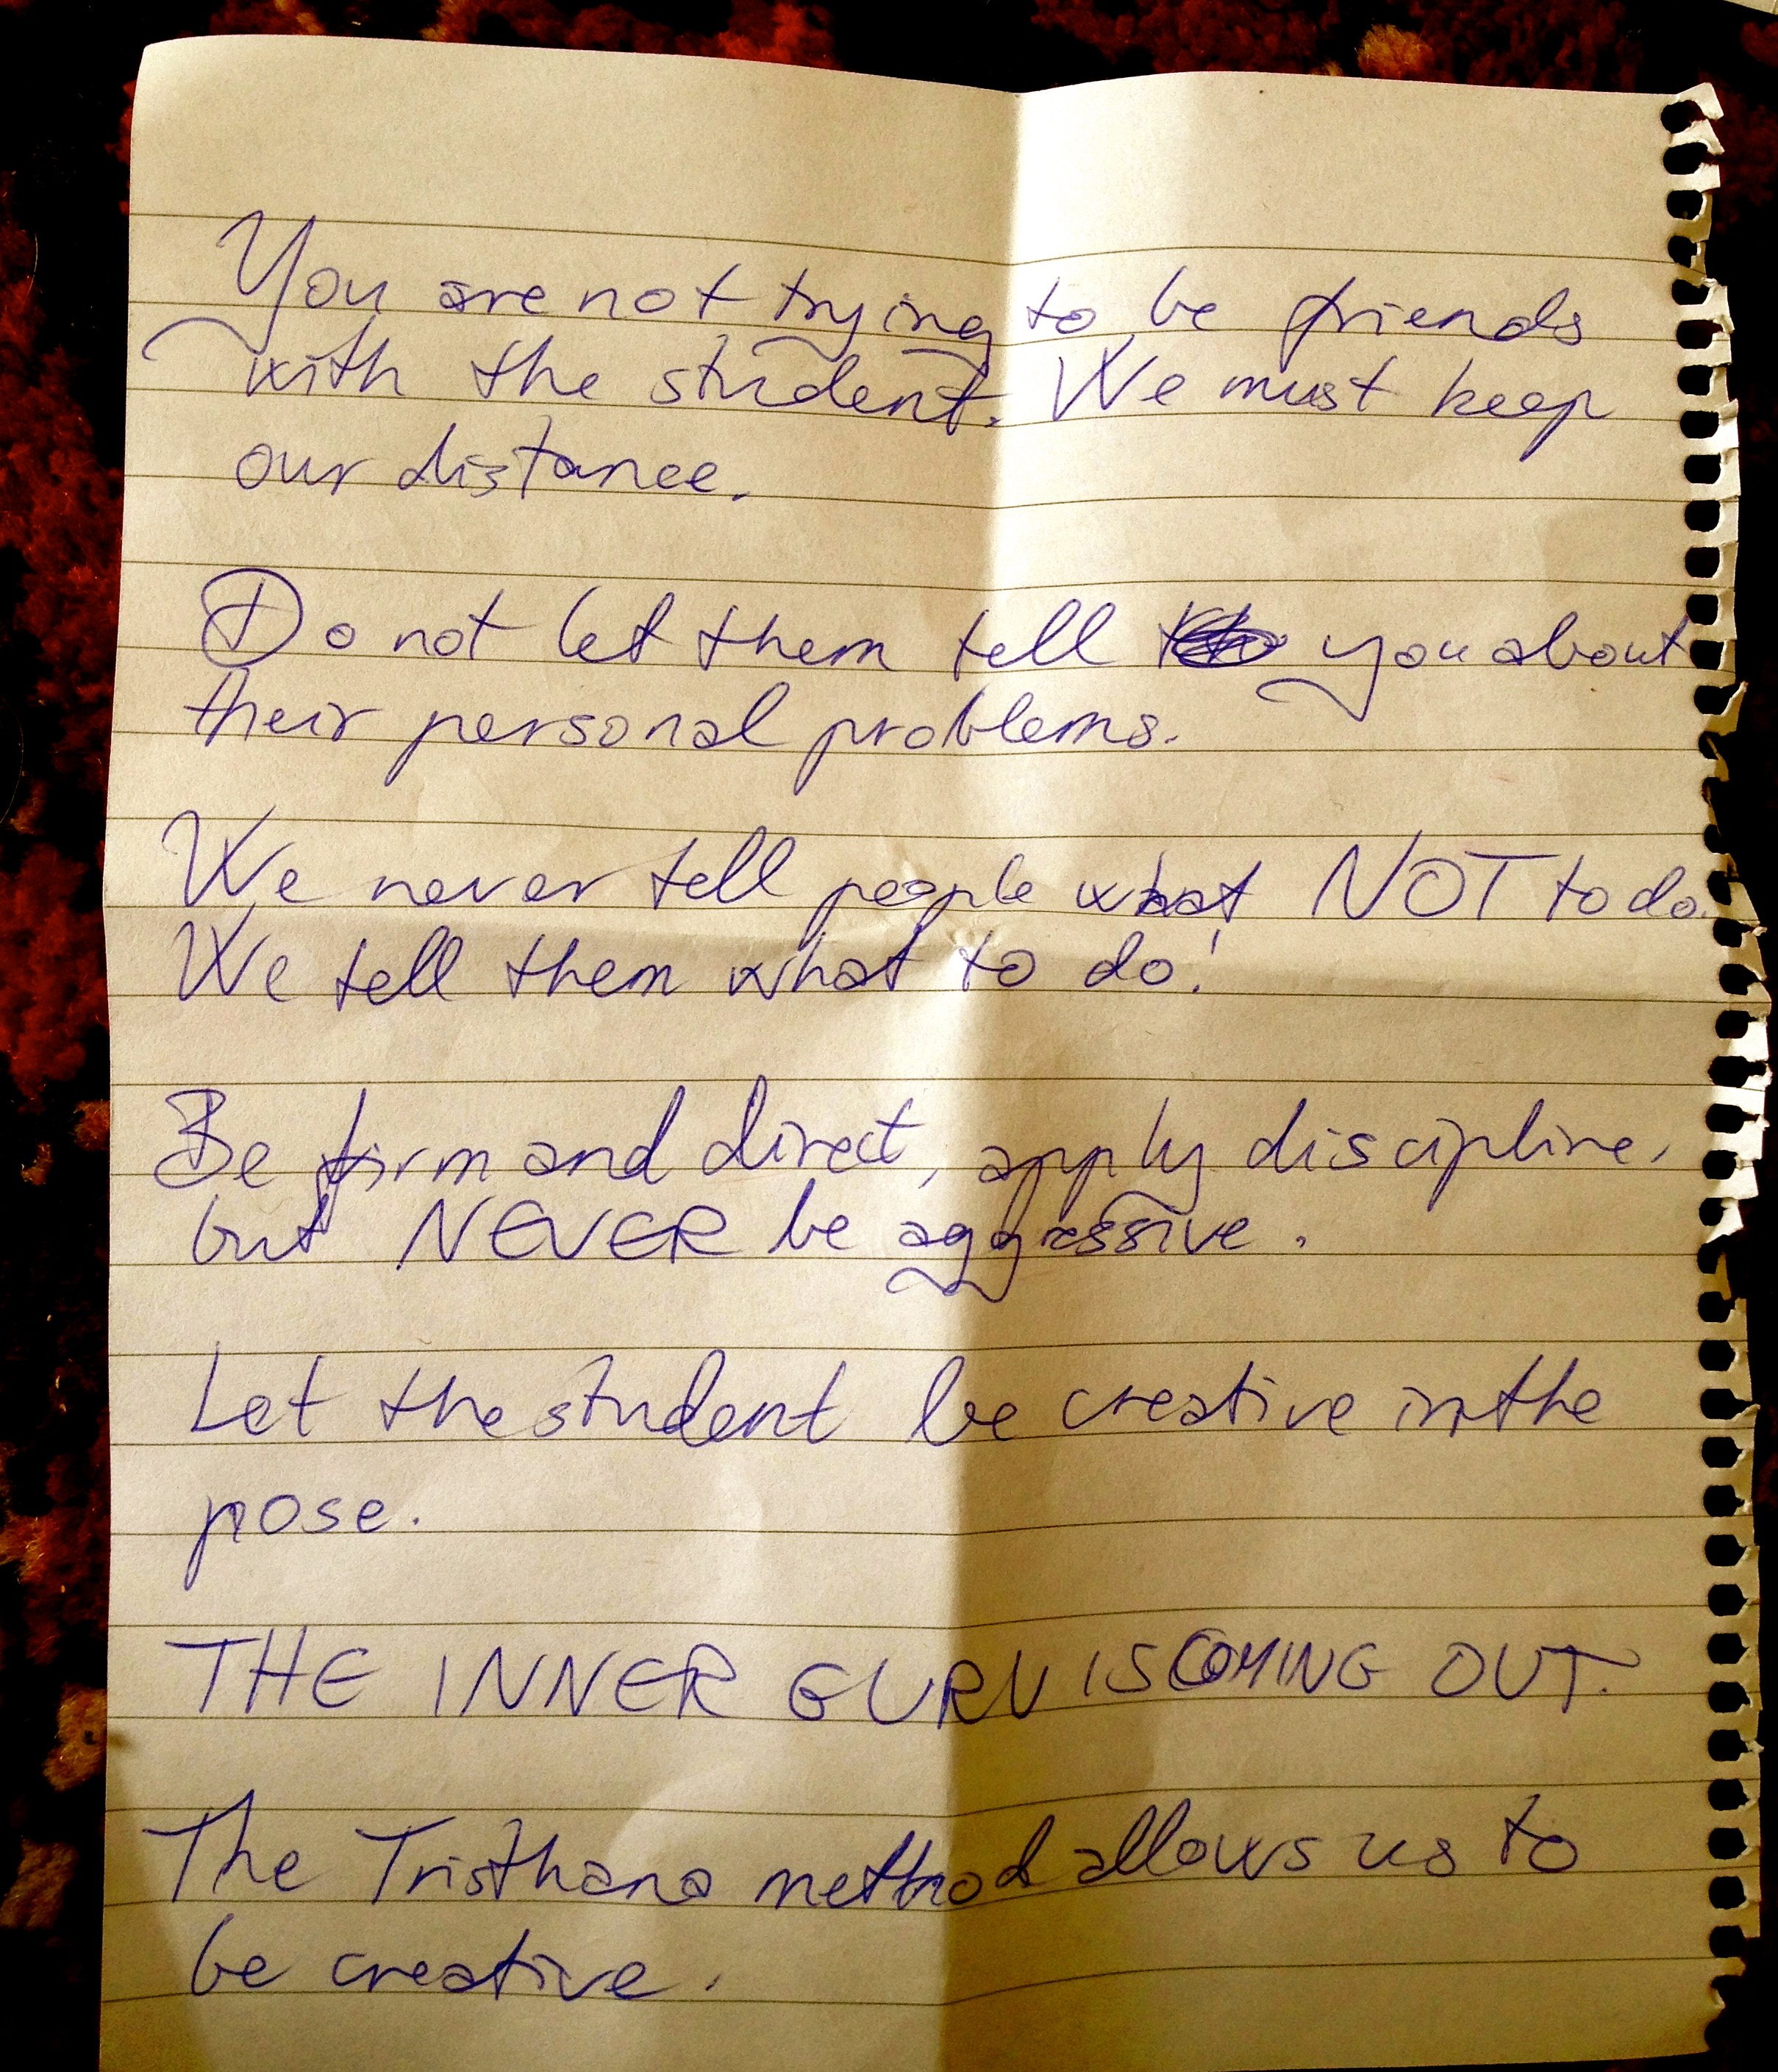 You are not trying to be friends
with the student. We must keep
our distance.
Do not let them tell you about
their personal problems.
We never tell people what NOT to do.
We tell them what to do!
Be firm and direct, apply discipline,
but NEVER be aggressive.
Let the student be creative in the
pose.
THE INNER GURU IS COMING OUT.
The Tristhana method allows us to
be creative.